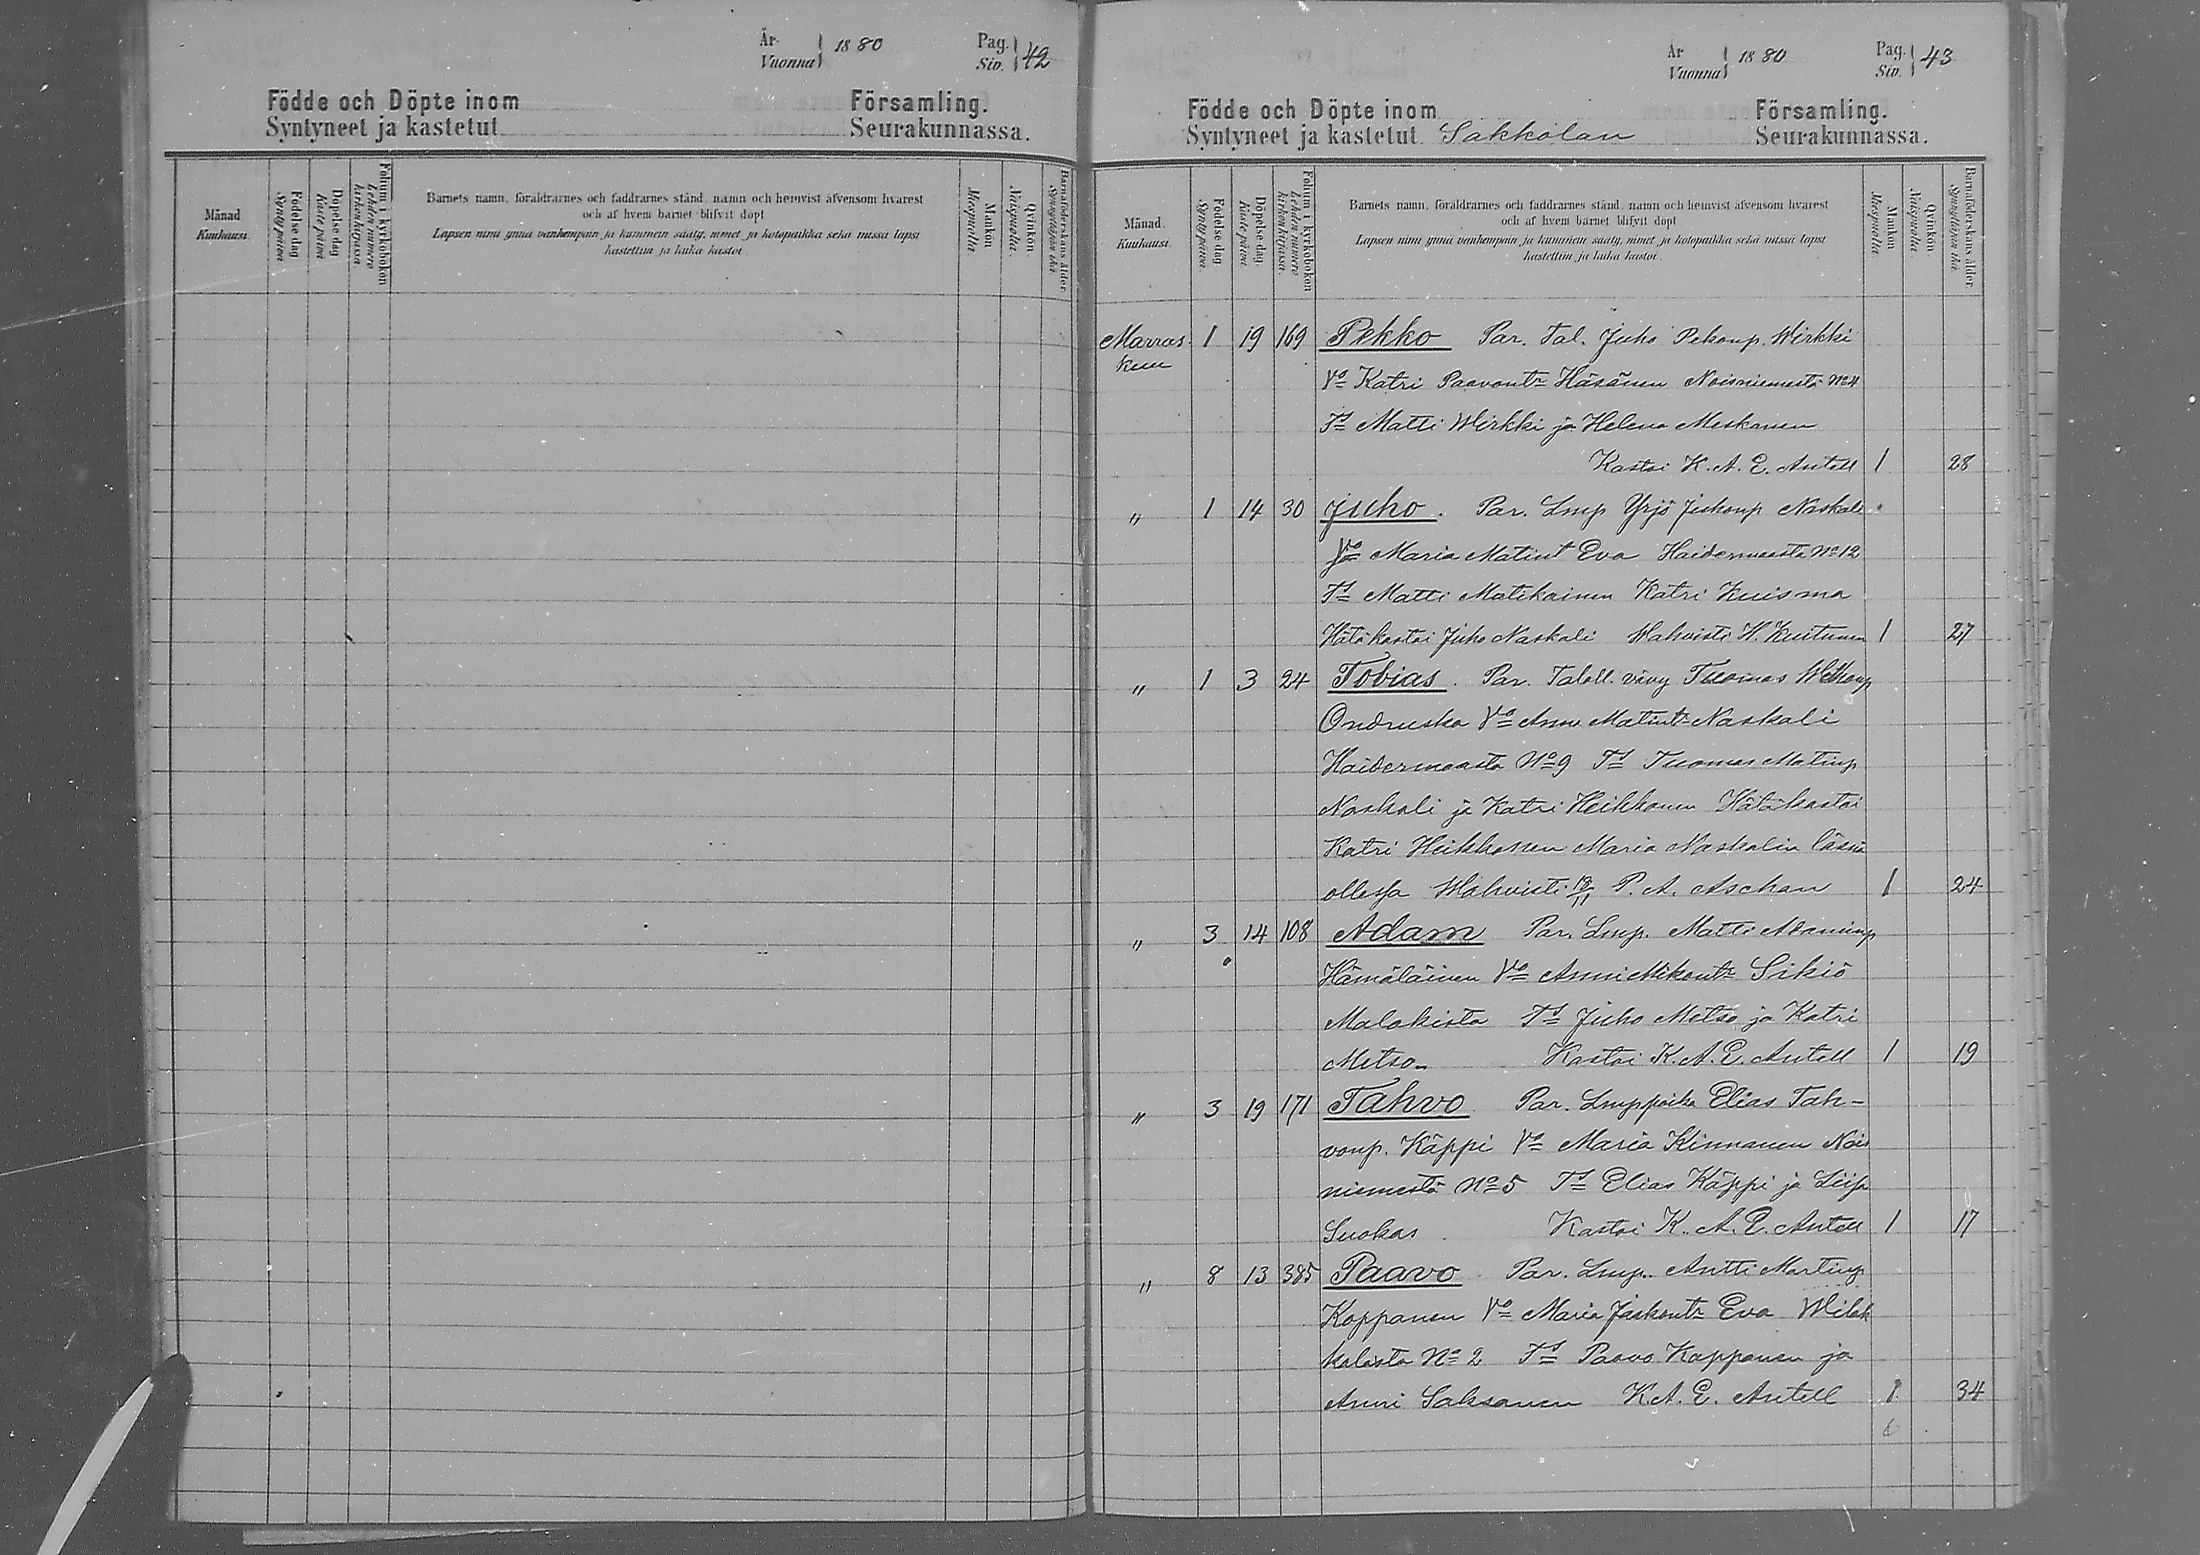 År 1880 Pag. 42
Vuonna Siv.
Födde och Döpte inom Församling.
Syntyneet ja kastetut Seurakunnassa.
Månad Kuukausi.
Födelse-dag Syntyt päivä
Döpelse-dag Kaste päivä
Folium i kyrkoboken Lehden numero kirkonkirjassa
Barnets namn, föräldrarnes och faddrarnes stånd, namn och hemvist äfvensom hvarest
och af hvem barnet blifvit döpt
Lapsen nimi ynnä vanhempain ja kummein sääty, nimet ja kotopaikka sekä missä lapsi
kastettiin ja kuka kastoi.
Mankön Miespuolia
Qvinkön Naispuolia
Barnaföderskans ålder Synnyttäjän ikä
År 1880 Pag. 43
Vuonna Siv.
Födde och Döpte inom Församling.
Syntyneet ja kastetut Sakkolan Seurakunnassa.
Månad. Kuukausi.
Födelse-dag Syntyt päivä
Döpelse-dag. Kaste päivä
Folium i kyrkoboken Lehden numero kirkonkirjassa.
Barnets namn, föräldrarnes och faddrarnes stånd, namn och hemvist äfvensom hvarest
och af hvem barnet blifvit döpt
Lapsen nimi ynnä vanhempain ja kummein sääty, nimet ja kotopaikka sekä missä lapsi
kastettiin ja kuka kastoi.
Mankön Miespuolia
Qvinkön. Naispuolia
Barnaföderskans ålder. Synnyttäjän ikä.
Marras 1 19 169 Pekko Par. Tal. Juho Pekonp. Wirkki
kuu
Vo Katri Paavontr Häsänen Noisniemestä No 4
Ts Matti Wirkki ja Helena Meskanen
Kastoi K. A. E. Antell 1 28
" 1 14 30 Juho. Par. Lmp Yrjö Juhonp Naskali
Vo Maria Matint Eva Haidermaasta No 12
Ts Matti Matikainen Katri Kuisma
Hätäkastoi Juho Naskali Wahvisti H. Kuitunen 1 27
" 1 3 24 Tobias. Par. Taloll. vävy Tuomas
Ondruska Vo Anna Matint Naskali
Haidermaasta No 9 Ts Tuomas Matinp
Naskali ja Katri Heikkonen Hätäkastoi
Katri Heikkosen Maria Naskalin läsnä
ollessa Wahvisti 18/11 P. A. Aschan 1 24
" 3 14 108 Adam Par. Lmp. Matti Adaminp
Hämäläinen Vo Anni Mikontr Sikiö
Malakista Ts Juho Metso ja Katri
Metso Kastoi K. A. E. Antell 1 19
" 3 19 171 Tahvo Par. Lmppoika Elias Tah-
vonp. Käppi Vo Maria Kinnanen Nois
niemestä No 5 Ts Elias Käppi ja Liisa
Suokas Kastoi K. A. E. Antell 1 17
" 8 13 385 Paavo Par. Lmp. Antti Martinp
Koppanen Vo Maria Jaakontr Eva Wilak
kalasta No 2 Ts Paavo Koppanen ja
Anni Saksanen K. A. E. Antell 1 34
6